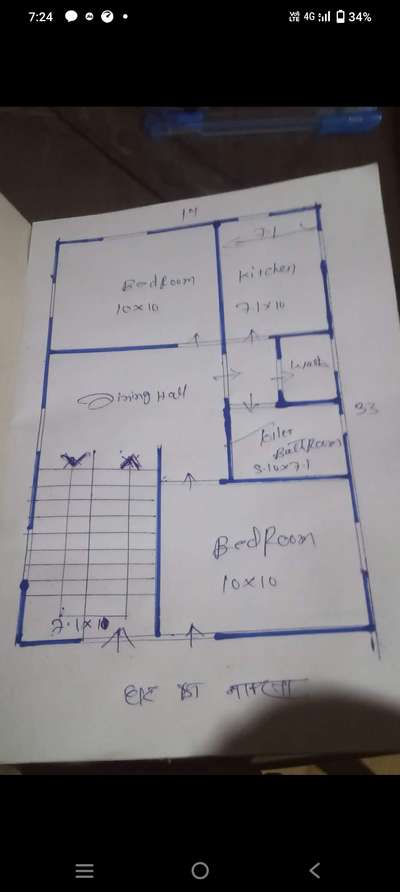 7:24
VoD LTE 4G 34%
19
7.1
Bedroom
10×10
Kitchen
7.1×10
Dining Hall
Wash
33
BathRoom
5.10×7.1
BedRoom
10×10
7.1×10
घर का नाक्सा